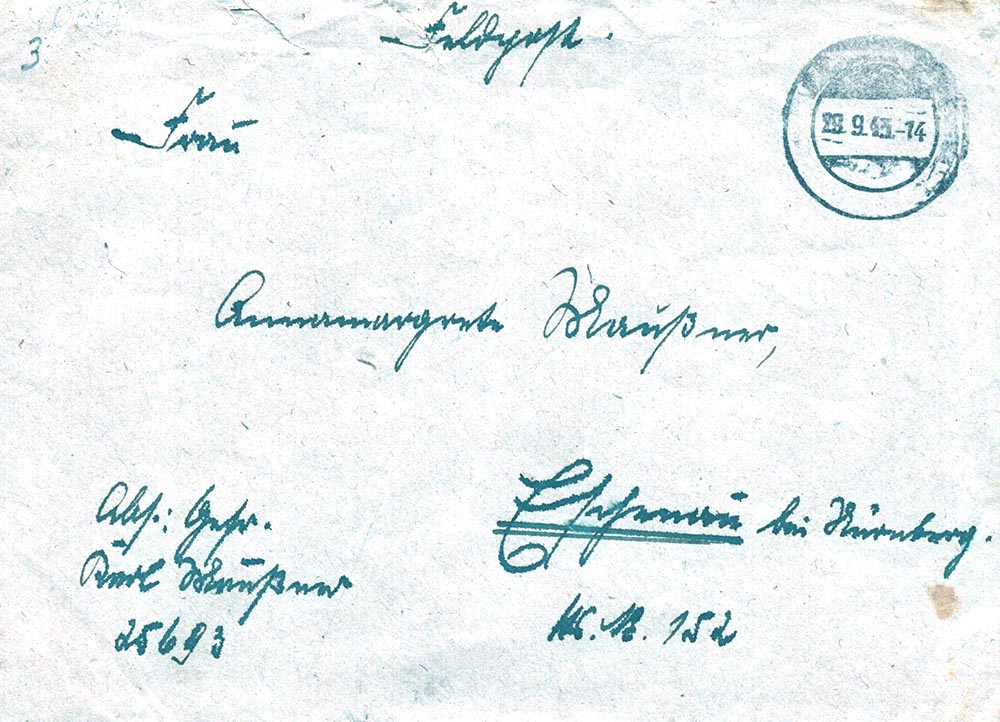 3
Feldpost.
29.9.43.-14
Frau
Annamargrete Maußner,
Eschenau bei Nürnberg.
Hs. N. 152
Abs.: Gefr.
Karl Maußner
25693